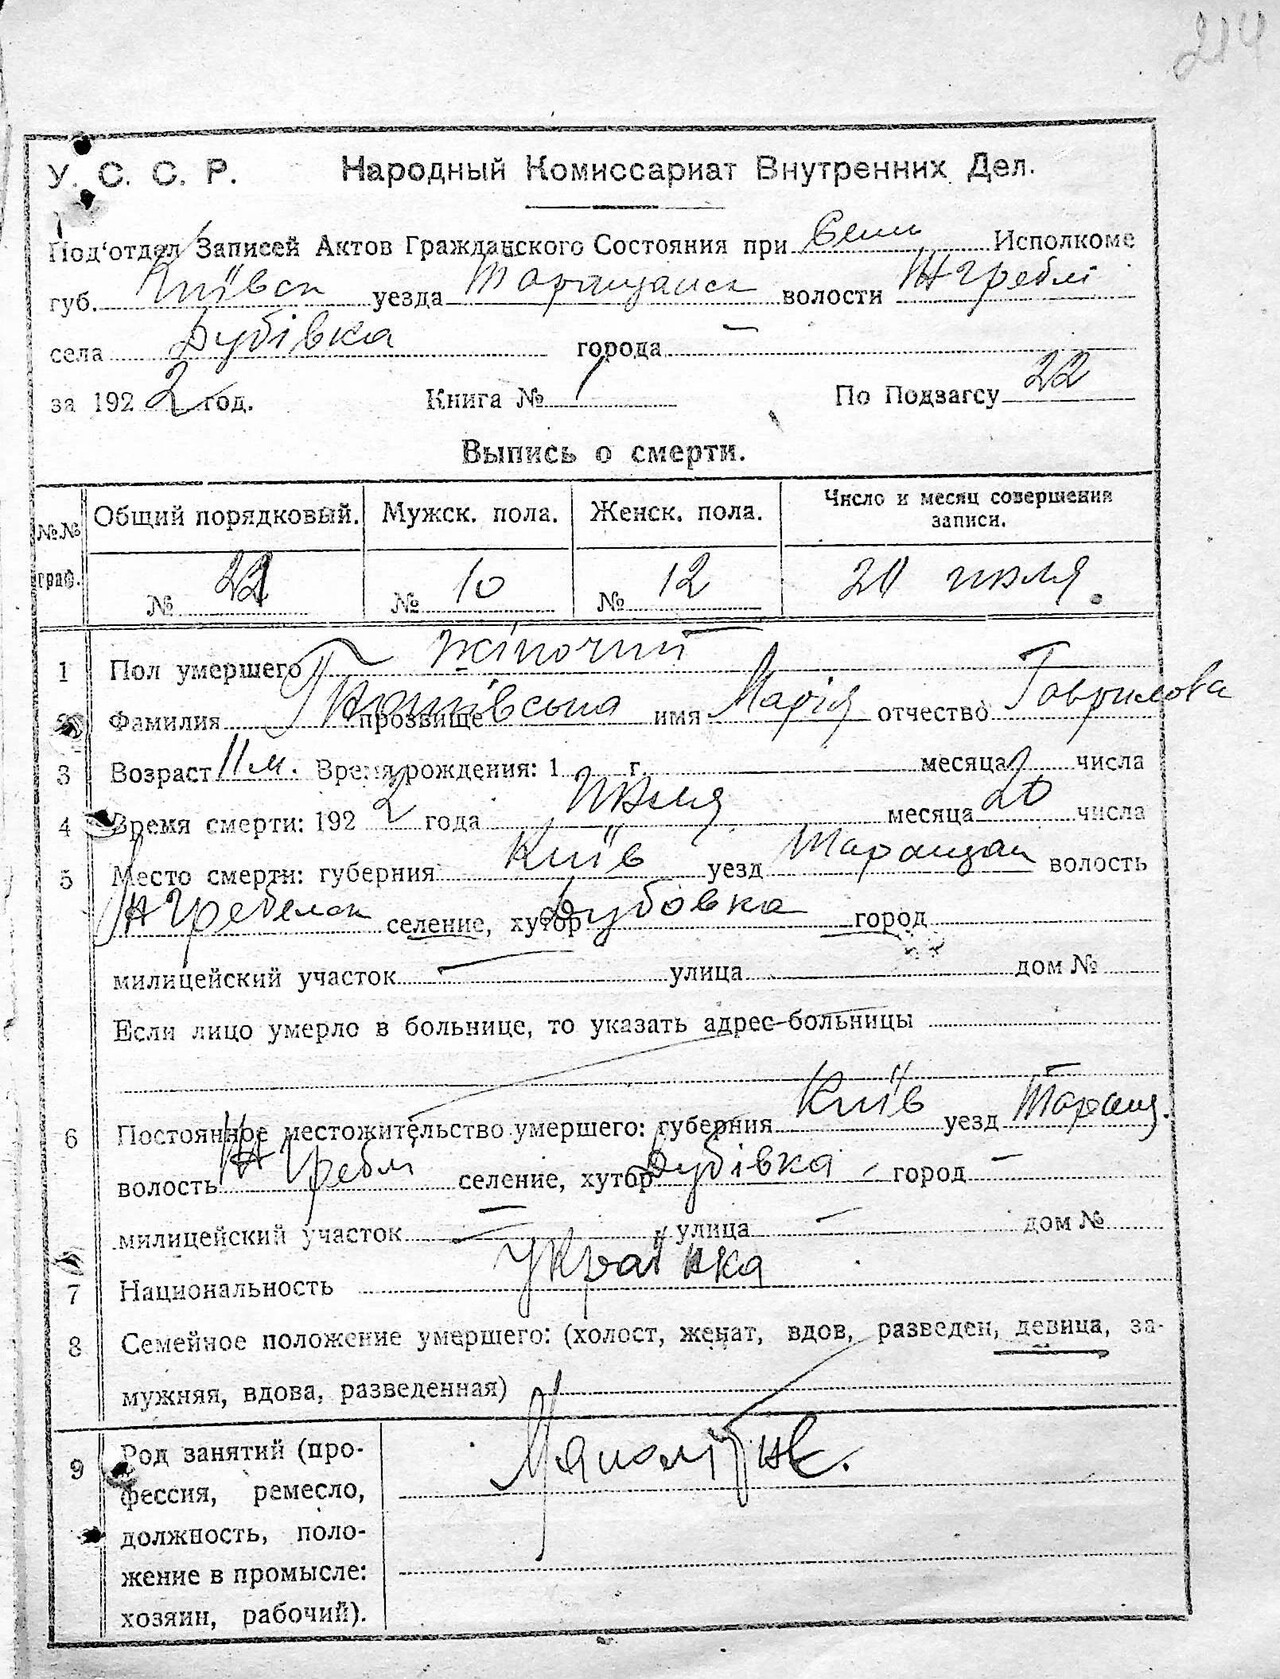 214
У. С. С. Р. Народный Комиссариат Внутренних Дел.
Под‘отдел Записей Актов Гражданского Состояния при Исполкоме
губ. Київск уезда Таращанск волости Жгреблі
села Дубівка города —
за 1922 год. Книга № 1 По Подзагсу 22
Выпись о смерти.
№№ граф. Общий порядковый. Мужск. пола. Женск. пола. Число и месяц совершения записи.
№ 22 № 10 № 12 20 июля.
1 Пол умершего жіночий
2 Фамилия прозвище имя Марія отчество Гаврилова
3 Возраст 11 м. Время рождения: 1 г. месяца числа
4 Время смерти: 1922 года июля месяца 20 числа
5 Место смерти: губерния Київ уезд Таращан волость
селение, хутор Дубовка город
милицейский участок — улица дом №
Если лицо умерло в больнице, то указать адрес больницы
6 Постоянное местожительство умершего: губерния Київ уезд Таращ.
волость Жгреблі селение, хутор Дубівка город —
милицейский участок — улица — дом №
7 Национальность Українка
8 Семейное положение умершего: (холост, женат, вдов, разведен, девица, за-
мужняя, вдова, разведенная)
9 Род занятий (про-
фессия, ремесло,
должность, поло-
жение в промысле:
хозяин, рабочий).